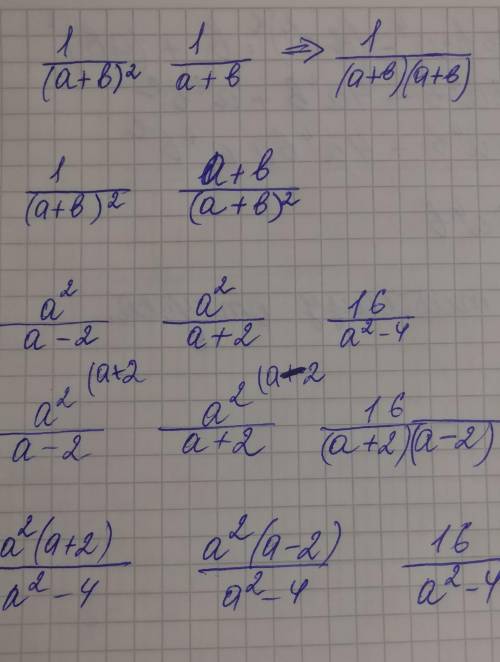 1/(a+b)² 1/(a+b) ⇒ 1/((a+b)(a+b))
1/(a+b)² (a+b)/(a+b)²
a²/(a-2) a²/(a+2) 16/(a²-4)
(a+2 (a-2
a²/(a-2) a²/(a+2) 16/((a+2)(a-2))
a²(a+2)/(a²-4) a²(a-2)/(a²-4) 16/(a²-4)